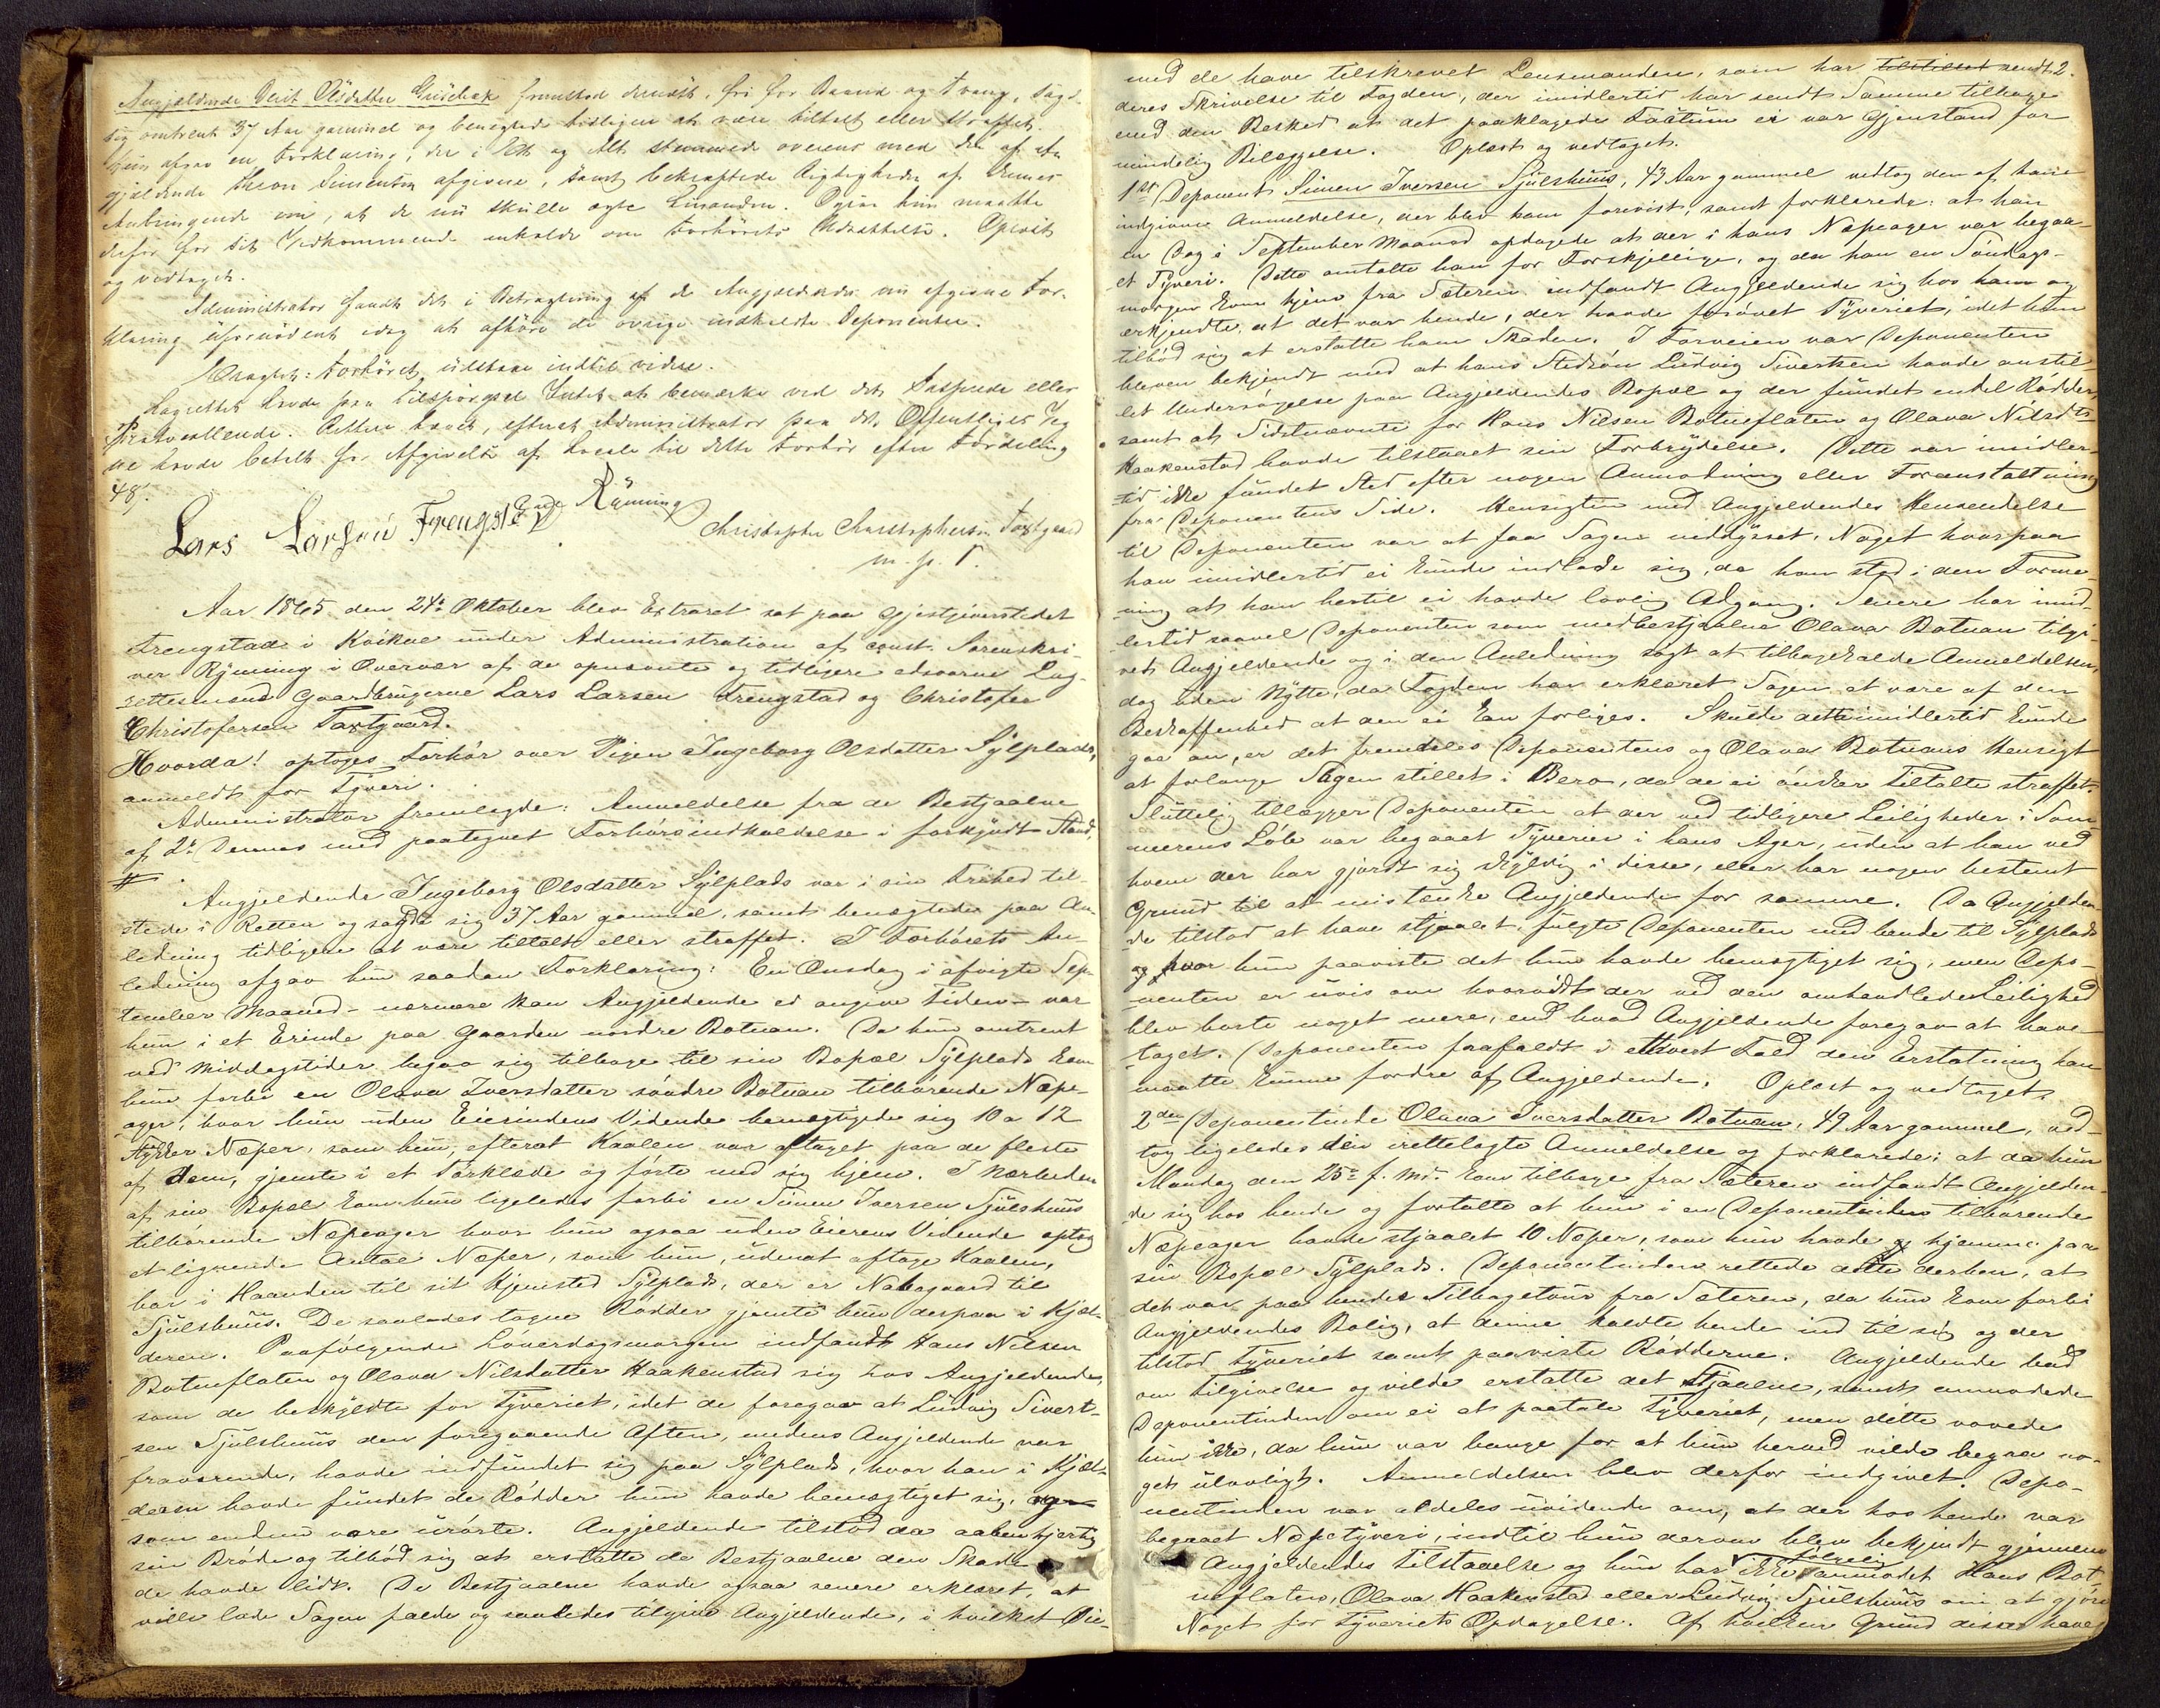 Angjeldende Berit Olsdatter Gudebak fremstod dernæst, fri for Baand og Tvang, sagde
sig omtrent 37 Aar gammel og benegtede tidligere at være tiltalt eller straffet.
Hun afgav en Forklaring, der i Et og Alt stemmede overens med den af An-
gjeldende Simensen afgivne, samt bekræftede Rigtigheden af dennes
Anbringende om, at de nu skulle egte hinanden. Ogsaa hun maatte
derfor for sit Vedkommende om Forhørets Udsættelse. Oplæst
og vedtaget.
Administrator fandt det i Betragtning af de Angjeldendes nu afgivne For-
klaring ufornødent idag at afhøre de øvrige indkaldte Deponenter.
Eragtet: Forhøret udstaar indtil videre.
Lagrettet havde paa Tilspørgsel Intet at bemærke ved det Passerede eller
Protocollerede. Retten hævet, efterat Administrator paa det Offentliges Veg-
ne havde betalt for Afgivelse af Locale til dette Forhør efter Fordeling
48 s.
Rynning
Lars Larsen Frengstad
Christopher Christophersen Taxtgaard
m. p. P.
Aar 1865 den 24de Oktober blev Extraret sat paa Gjestgiverstedet
Frengstad i Kvikne under Administration af const. Sorenskri-
ver Rynning i Overvær af de opnævnte og tidligere edsvorne Lag-
rettesmænd Gaardbrugerne Lars Larsen Frengstad og Christofer
Christofersen Taxtgaard.
Hvorda! optoges Forhør over Pigen Ingeborg Olsdatter Sylplads,
anmeldt for Tyveri.
Administrator fremlagde: Anmeldelse fra de Bestjaalne
af 2de Dennes med paategnet Forhørsindkaldelse i forkyndt Stand.
#
Angjeldende Ingeborg Olsdatter Sylplads var i sin Frihed til-
stede i Retten og sagde sig 37 Aar gammel, samt benegtede paa An-
ledning tidligere at være tiltalt eller straffet. I Forhørets An-
ledning afgav hun saadan Forklaring: En Onsdag i afvigte Sep-
tember Maaned – nærmere kan Angjeldende ei angive Tiden – var
hun i et Erinde paa Gaarden nordre Botnan. Da hun omtrent
ved Middagstider begav sig tilbage til sin Bopæl Sylplads kom
hun forbi en Olava Iversdatter søndre Botnan tilhørende Næpe-
ager, hvor hun uden Eierindens Vidende bemægtigede sig 10 a 12
Stykker Næper, som hun, efterat Kaalen var aftaget paa de fleste
af dem, gjemte i et Forklæde og førte med sig hjem. I Nærheden
af sin Bopæl kom hun ligeledes forbi en Simen Iversen Sjulshuus
tilhørende Næpeager hvor hun ogsaa uden Eierens Vidende optog
et lignende Antal Næper, som hun, uden at aftage Kaalen,
bar i Haanden til sit Hjemsted Sylplads, der er Nabogaard til
Sjulshuus. De saaledes tagne Rødder gjemte hun derpaa i Kjæl-
deren. Paafølgende Løverdagsmorgen indfandt Hans Nilsen
Botneflaten og Olava Nilsdatter Haakenstad sig hos Angjeldende,
som de beskyldte for Tyveriet, idet de foregav at Ludvig Sivert-
sen Sjulshuus den foregaaende Aften, medens Angjeldende var
fraværende, havde indfundet sig paa Sylplads, hvor han i Kjæl-
deren havde fundet de Rødder hun havde bemægtiget sig, og
som endnu vare urørte. Angjeldende tilstod da aabenhjertig
sin Brøde og tilbød sig at erstatte de Bestjaalne den Skade
de havde lidt. De Bestjaalne havde ogsaa senere erklæret, at
ville lade Sagen falde og saaledes tilgive Angjeldende, i hvilket Øie-
med de have tilskrevet Lensmanden, som har tilstillet sendt 2.
deres Skrivelse til Fogden, der imidlertid har sendt Samme tilbage
med den Besked at det paaklagede Factum ei var Gjenstand for
mindelig Bilæggelse. Oplæst og vedtaget.
1ste Deponent Simen Iversen Sjulshuus, 43 Aar gammel vedtog den af ham
indgivne Anmeldelse, der blev ham forevist, samt forklarede: at han
en Dag i September Maaned opdagede at der i hans Næpeager var begaa-
et Tyveri. Dette omtalte han for Forskjellige, og da han en Søndags-
morgen kom hjem fra Sæteren indfandt Angjeldende sig hos ham og
erkjendte at det var hende, der havde forøvet Tyveriet, idet hun
tilbød sig at erstatte ham Skaden. I Forveien var Deponenten
bleven bekjendt med at hans Stedsøn Ludvig Sivertsen havde anstil-
let Undersøgelse paa Angjeldendes Bopæl og der fundet endel Rødder,
samt at Sidstnævnte for Hans Nilsen Botneflaten og Olava Nilsdtr
Haakenstad havde tilstaaet sin Forbrydelse. Dette var imidler-
tid ikke fundet Sted efter nogen Anmodning eller Foranstaltning
fra Deponentens Side. Hensigten med Angjeldendes Henvendelse
til Deponenten var at faa Sagen neddysset, Noget hvorpaa
han imidlertid ei kunde indlade sig, da han stod i den Forme-
ning at han hertil ei havde lovlig Adgang. Senere har imid-
lertid saavel Deponenten som medbestjaalne Olava Botnan tilgi-
vet Angjeldende og i den Anledning søgt at tilbagekalde Anmeldelsen,
dog uden Nytte, da Fogden har erklæret Sagen at være af den
Beskaffenhed at den ei kan forliges. Skulde dette imidlertid kunde
gaa an, er det fremdeles Deponentens og Olava Botnans Hensigt
at forlange Sagen stillet i Bero, da de ei ønsker Tiltalte straffet.
Sluttelig tillægger Deponenten at der ved tidligere Leiligheder i Som-
merens Løb var begaaet Tyverier i hans Ager, uden at han ved
hvem der har gjordt sig skyldig i disse, eller har nogen bestemt
Grund til at mistænke Angjeldende for samme. Da Angjelden-
de tilstod at have stjaalet, fulgte Deponenten med hende til Sylplads
og hvor hun paaviste det hun havde bemægtiget sig, men Depo-
nenten er uvis om hvorvidt der ved den omhandlede Leilighed
blev borte noget mere, end hvad Angjeldende foregav at have
taget. Deponenten frafaldt i ethvert Fald den Erstatning han
maatte kunne fordre af Angjeldende. Oplæst og vedtaget.
2den Deponentinde Olava Iversdatter Botnan, 49 Aar gammel, ved-
tog ligeledes den irettelagte Anmeldelse og forklarede: at da hun
Mandag den 25de f. Md. kom tilbage fra Sæteren indfandt Angjelden-
de sig hos hende og fortalte at hun i en Deponentinden tilhørende
Næpeager havde stjaalet 10 Næper, som hun havde hjemme paa
sin Bopæl Sylplads. Deponentinden rettede dette derhen, at
det var paa hendes Tilbagetour fra Sæteren, da hun kom forbi
Angjeldendes Bolig, at denne kaldte hende ind til sig og der
tilstod Tyveriet samt paaviste Rødderne. Angjeldende bad
om Tilgivelse og vilde erstatte det Stjaalne, samt anmodede
Deponentinden om ei at paatale Tyveriet, men dette vovede
hun ikke, da hun var bange for at hun herved vilde begaa no-
get ulovligt. Anmeldelsen blev derfor indgivet. Depo-
nentinden var aldeles uvidende om, at der hos hende var
begaaet Næpetyveri, indtil hun derom blev bekjendt gjennem
Angjeldendes Tilstaaelse og hun har følgelig ikke anmodet Hans Bot-
neflaten, Olava Haakenstad eller Ludvig Sjulshuus om at gjøre
Noget for Tyveriets Opdagelse. Af hvilken Grund disse have